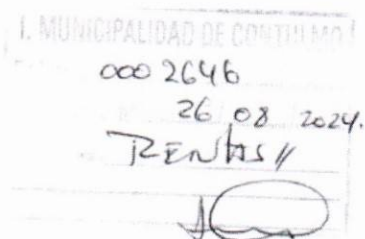 I. MUNICIPALIDAD DE CONTULMO
000 2646
26 08 2024.
RENTAS //